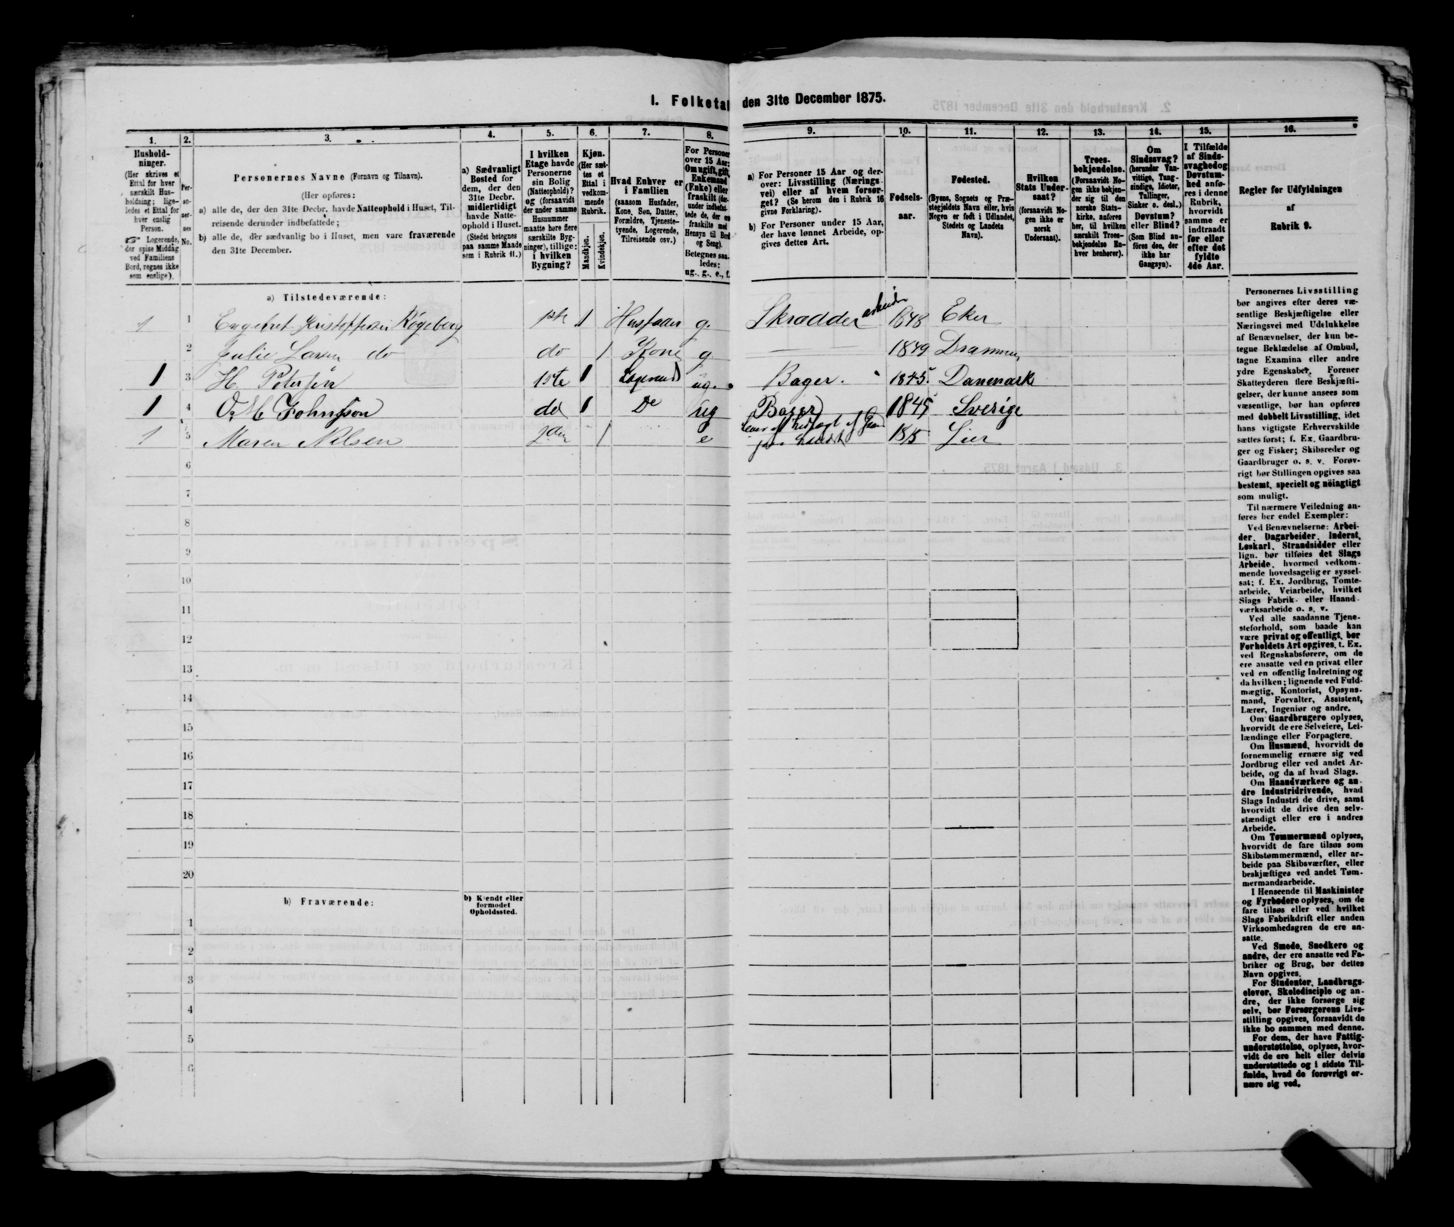 I. Folketal den 31te December 1875.
1. 2. 3. 4. 5. 6. 7. 8. 9. 10. 11. 12. 13. 14. 15. 16.
Hushold-
ninger.
(Her skrives et
Ettal for hver
særskilt Hus-
holdning; lige-
ledes et Ettal for
hver enslig
Person.
☞ Logerende,
der spise Middag
ved Familiens
Bord, regnes ikke
som enslige).
Per-
so-
ner-
nes
No.
Personernes Navne (Fornavn og Tilnavn).
(Her opføres:
a) alle de, der den 31te Decbr. havde Natteophold i Huset, Til-
reisende derunder indbefattede;
b) alle de, der sædvanlig bo i Huset, men vare fraværende
den 31te December.
a) Sædvanligt
Bosted for
dem, der den
31te Decbr.
midlertidigt
havde Natte-
ophold i Huset.
(Stedet betegnes
paa samme Maade
som i Rubrik 11.)
I hvilken
Etage havde
Personerne
sin Bolig
(Natteophold)?
og (forsaavidt
der under samme
Husnummer
maatte høre flere
særskilte Byg-
ninger), tillige:
i hvilken
Bygning?
Kjøn.
(Her sæt-
tes et
Ettal i
vedkom-
mende
Rubrik.
Mandkjøn.
Kvindekjøn.
Hvad Enhver er
i Familien
(saasom Husfader,
Kone, Søn, Datter,
Forældre, Tjeneste-
tyende, Logerende,
Tilreisende osv.)
For Personer
over 15 Aar:
Om ugift, gift,
Enkemand
(Enke) eller
fraskilt
Betegnes saa-
ledes:
ug., g., e., f.
a) For Personer 15 Aar og der-
over: Livsstilling (Nærings-
vei) eller af hvem forsør-
get? (Se herom den i Rubrik 16
givne Forklaring).
b) For Personer under 15 Aar,
der have lønnet Arbeide, op-
gives dettes Art.
Fødsels-
aar.
Fødested.
(Byens, Sognets og Præ-
stegjeldets Navn eller, hvis
Nogen er født i Udlandet,
Stedets og Landets
Navn).
Hvilken
Stats Under-
saat?
(forsaavidt No-
gen ikke er
norsk
Undersaat).
Troes-
bekjendelse.
(Forsaavidt No-
gen ikke bekjen-
der sig til den
norske Stats-
kirke, anføres
her, til hvilken
særskilt Troes-
bekjendelse En-
hver henhører).
Om
Sindssvag?
(herunder Van-
vittige, Tung-
sindige, Idioter,
Tullinger,
Sinker o. desl.)
Døvstum?
eller Blind?
(Som Blind an-
føres den, der
ikke har
Gangsyn).
I Tilfælde
af Sinds-
svaghed og
Døvstum-
hed anfø-
res i denne
Rubrik,
hvorvidt
samme er
indtraadt
før eller
efter det
fyldte
4de Aar.
Regler for Udfyldningen
af
Rubrik 9.
a) Tilstedeværende:
1 1 Engebret Kristoffersen Køgeberg 1ste 1 Husfader g. Skrædder arbeider 1848 Eker
2 Julie Larsen do do 1 Kone g 1849 Drammen
1 3 H. Petersen 1ste 1 Logerend ug. Bager. 1845. Danemark
1 4 O. M. Johnsson do 1 Do ug Bager 1845 Sverige
1 5 Maren Nilsen 2den 1 e Lier
6
7
8
9
10
11
12
13
14
15
16
17
18
19
20
b) Fraværende:
b) Kjendt eller
formodet
Opholdssted.
1
2
3
4
5
6
Personernes Livsstilling
bør angives efter deres væ-
sentlige Beskjæftigelse eller
Næringsvei med Udelukkelse
af Benævnelser, der kun be-
tegne Beklædelse af Ombud,
tagne Examina eller andre
ydre Egenskaber. Forener
Skatteyderen flere Beskjæfti-
gelser, der kunne ansees som
væsentlige, bør han opføres
med dobbelt Livsstilling, idet
hans vigtigste Erhvervskilde
sættes først; f. Ex. Gaardbru-
ger og Fisker; Skibsreder og
Gaardbruger o. s. v. Forøv-
rigt bør Stillingen opgives saa
bestemt, specielt og nøiagtigt
som muligt.
Til nærmere Veiledning an-
føres her endel Exempler:
Ved Benævnelserne: Arbei-
der, Dagarbeider, Inderst,
Løskarl, Strandsidder eller
lign. bør tilføies det Slags
Arbeide, hvormed vedkom-
mende hovedsagelig er syssel-
sat; f. Ex. Jordbrug, Tomte-
arbeide, Veiarbeide, hvilket
Slags Fabrik- eller Haand-
værksarbeide o. s. v.
Ved alle saadanne Tjene-
steforhold, som baade kan
være privat og offentligt, bør
Forholdets Art opgives, t. Ex.
ved Regnskabsførere, om de
ere ansatte ved en privat eller
ved en offentlig Indretning og
da hvilken; lignende ved Fuld-
mægtig, Kontorist, Opsyns-
mand, Forvalter, Assistent,
Lærer, Ingeniør og andre.
Om Gaardbrugere oplyses,
hvorvidt de ere Selveiere, Lei-
lændinge eller Forpagtere.
Om Husmænd, hvorvidt de
fornemmelig ernære sig ved
Jordbrug eller ved andet Ar-
beide, og da af hvad Slags.
Om Haandværkere og an-
dre Industridrivende, hvad
Slags Industri de drive, samt
hvorvidt de drive den selv-
stændigt eller ere i andres
Arbeide.
Om Tømmermænd oplyses,
hvorvidt de fare tilsøs som
Skibstømmermænd, eller ar-
beide paa Skibsværfter, eller
beskjæftiges ved andet Tøm-
mermandsarbeide.
I Henseende til Maskinister
og Fyrbødere oplyses, om de
fare tilsøs eller ved hvilket
Slags Fabrikdrift eller anden
Virksomhedsgren de ere an-
satte.
Ved Smede, Snedkere og
andre, der ere ansatte ved Fa-
briker og Brug, bør dettes
Navn opgives.
For Studenter, Landbrugs-
elever, Skoledisciple og an-
dre, der ikke forsørge sig
selv, bør Forsørgerens Livs-
stilling opgives, forsaavidt de
ikke bo sammen med denne.
For dem, der have Fattig-
understøttelse, oplyses, hvor-
vidt de ere helt eller delvis
understøttede og i sidste Til-
fælde, hvad de forøvrigt er-
nære sig ved.